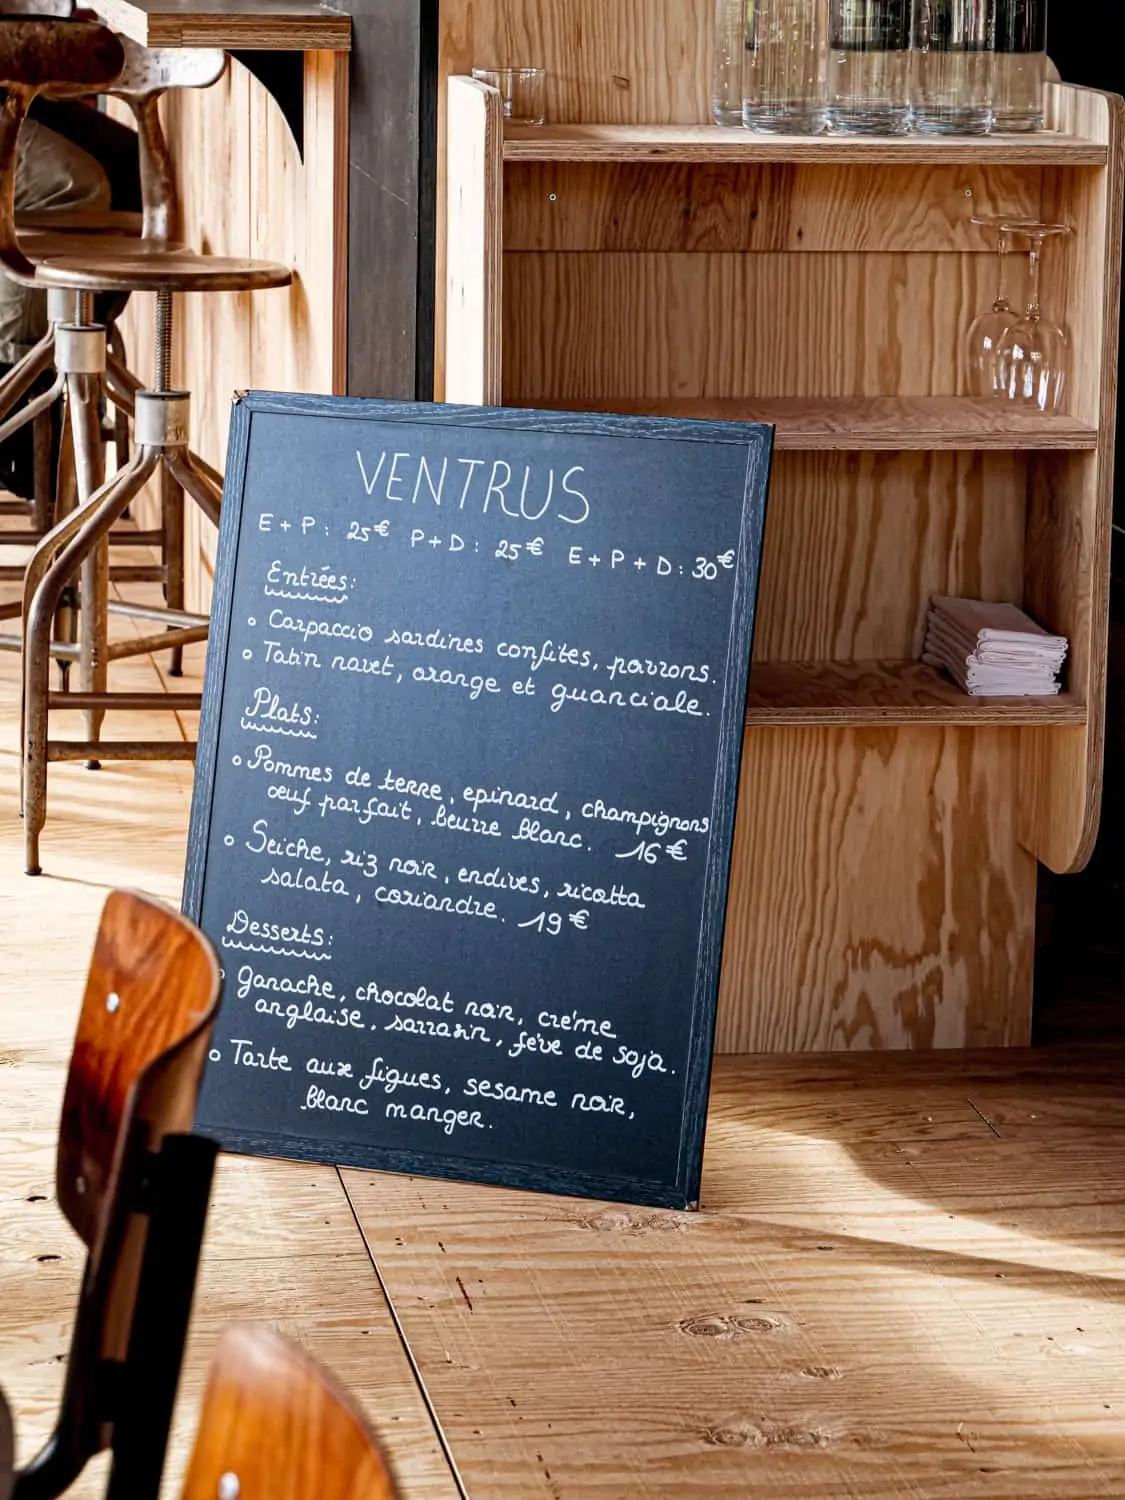 VENTRUS
E + P : 25€ P + D : 25€ E + P + D : 30€
Entrées:
o Carpaccio sardines confites, poivrons.
o Tatin navet, orange et guanciale.
Plats:
o Pommes de terre, epinard, champignons
œuf parfait, beurre blanc. 16€
o Seiche, riz noir, endives, ricotta
salata, coriandre. 19€
Desserts:
o Ganache, chocolat noir, créme
anglaise, sarrasin, féve de soja.
o Tarte aux figues, sesame noir,
blanc manger.